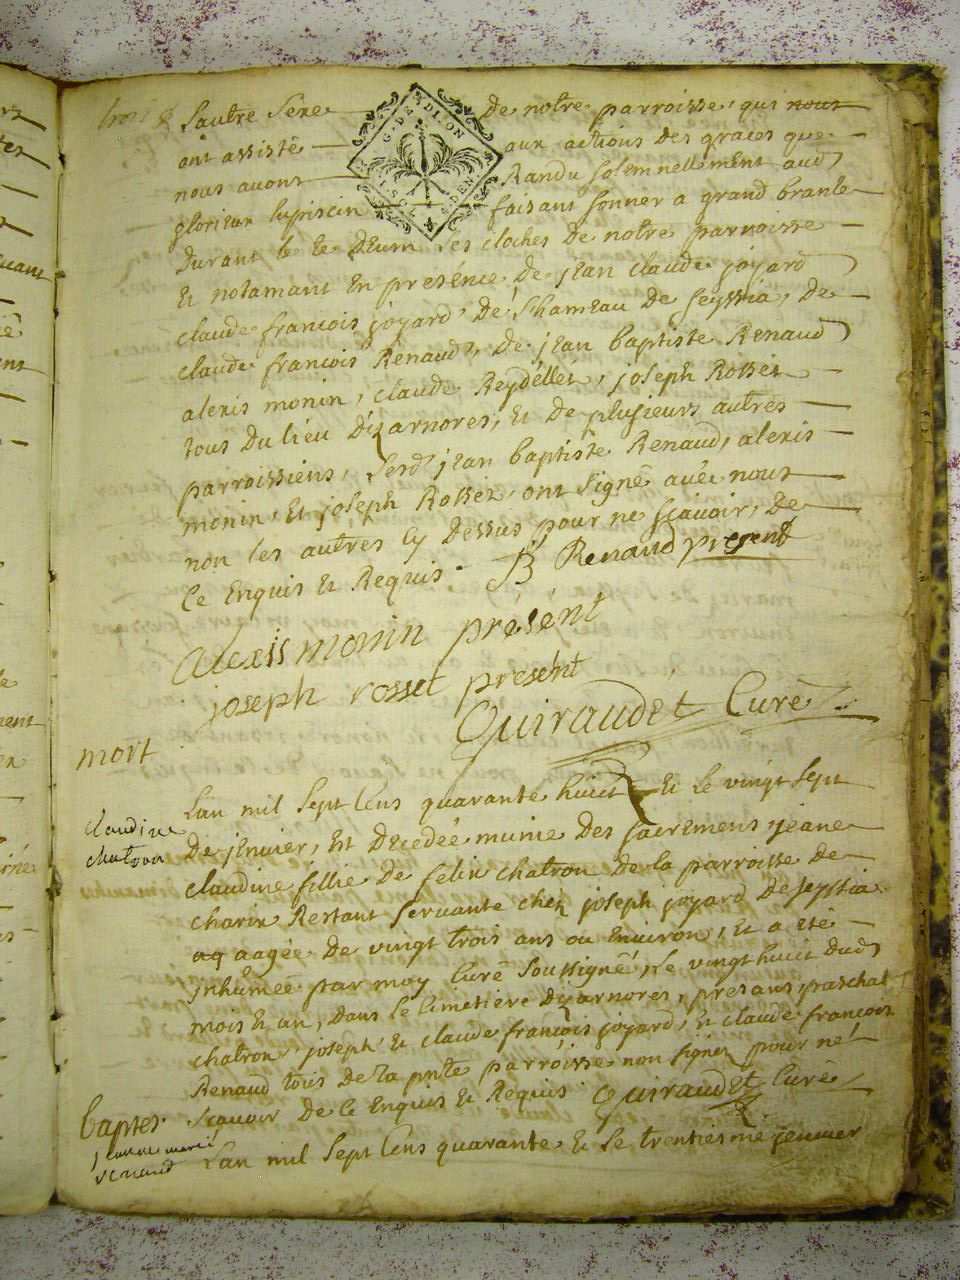 Lautre Sexe de notre parroisse, qui nous
ont assisté aux actions des graces que
nous avons Randu solemnellement aud
glorieux lupiscin faisant sonner a grand branle
G. DE DIJON
DIX DEN
durant le te Deum Les cloches de notre parroisse
Et notamant En presénce de jean claude joyard
claude francois joyard, de l'hameau de seyssia, de
claude francois Renaud, de jean baptiste Renaud
alexis monin, claude Reydéllet, joseph Rosset
tous du lieu dizarnores, Et de plusieurs autres
parroissiens, Lesd jean baptiste Renaud, alexis
monin, Et joseph Rosset ont signé avéc nous
non les autres cy dessus pour ne sçavoir, de
ce Enquis Et Requis. JB Renaud present
Alexis monin présént
joseph rosset present
Guiraudet Curé
mort
claudine
chatron
Lan mil sept Cens quarante huict Et le vingt sept
de jenvier, Est decedée munie des sacremens jeane
claudine fillie de felix chatron de la parroisse de
charix Restant servante chez joseph joyard de seyssia
aq aagée de vingt trois ans ou Environ, Et a eté
jnhumée par moy Curé soussigné, Le vingt huict dud
mois Et an, dans le Cimetiére dizarnores, presans paschal
chatron, joseph Et claude francois joyard, Et claude francois
Renaud tous de la pnte parroisse non signez pour né
sçavoir de ce Enquis Et Requis Guiraudet Curé
baptes.
jeanne marie
renaud
Lan mil sept Cens quarante Et le trentiesme jenvier